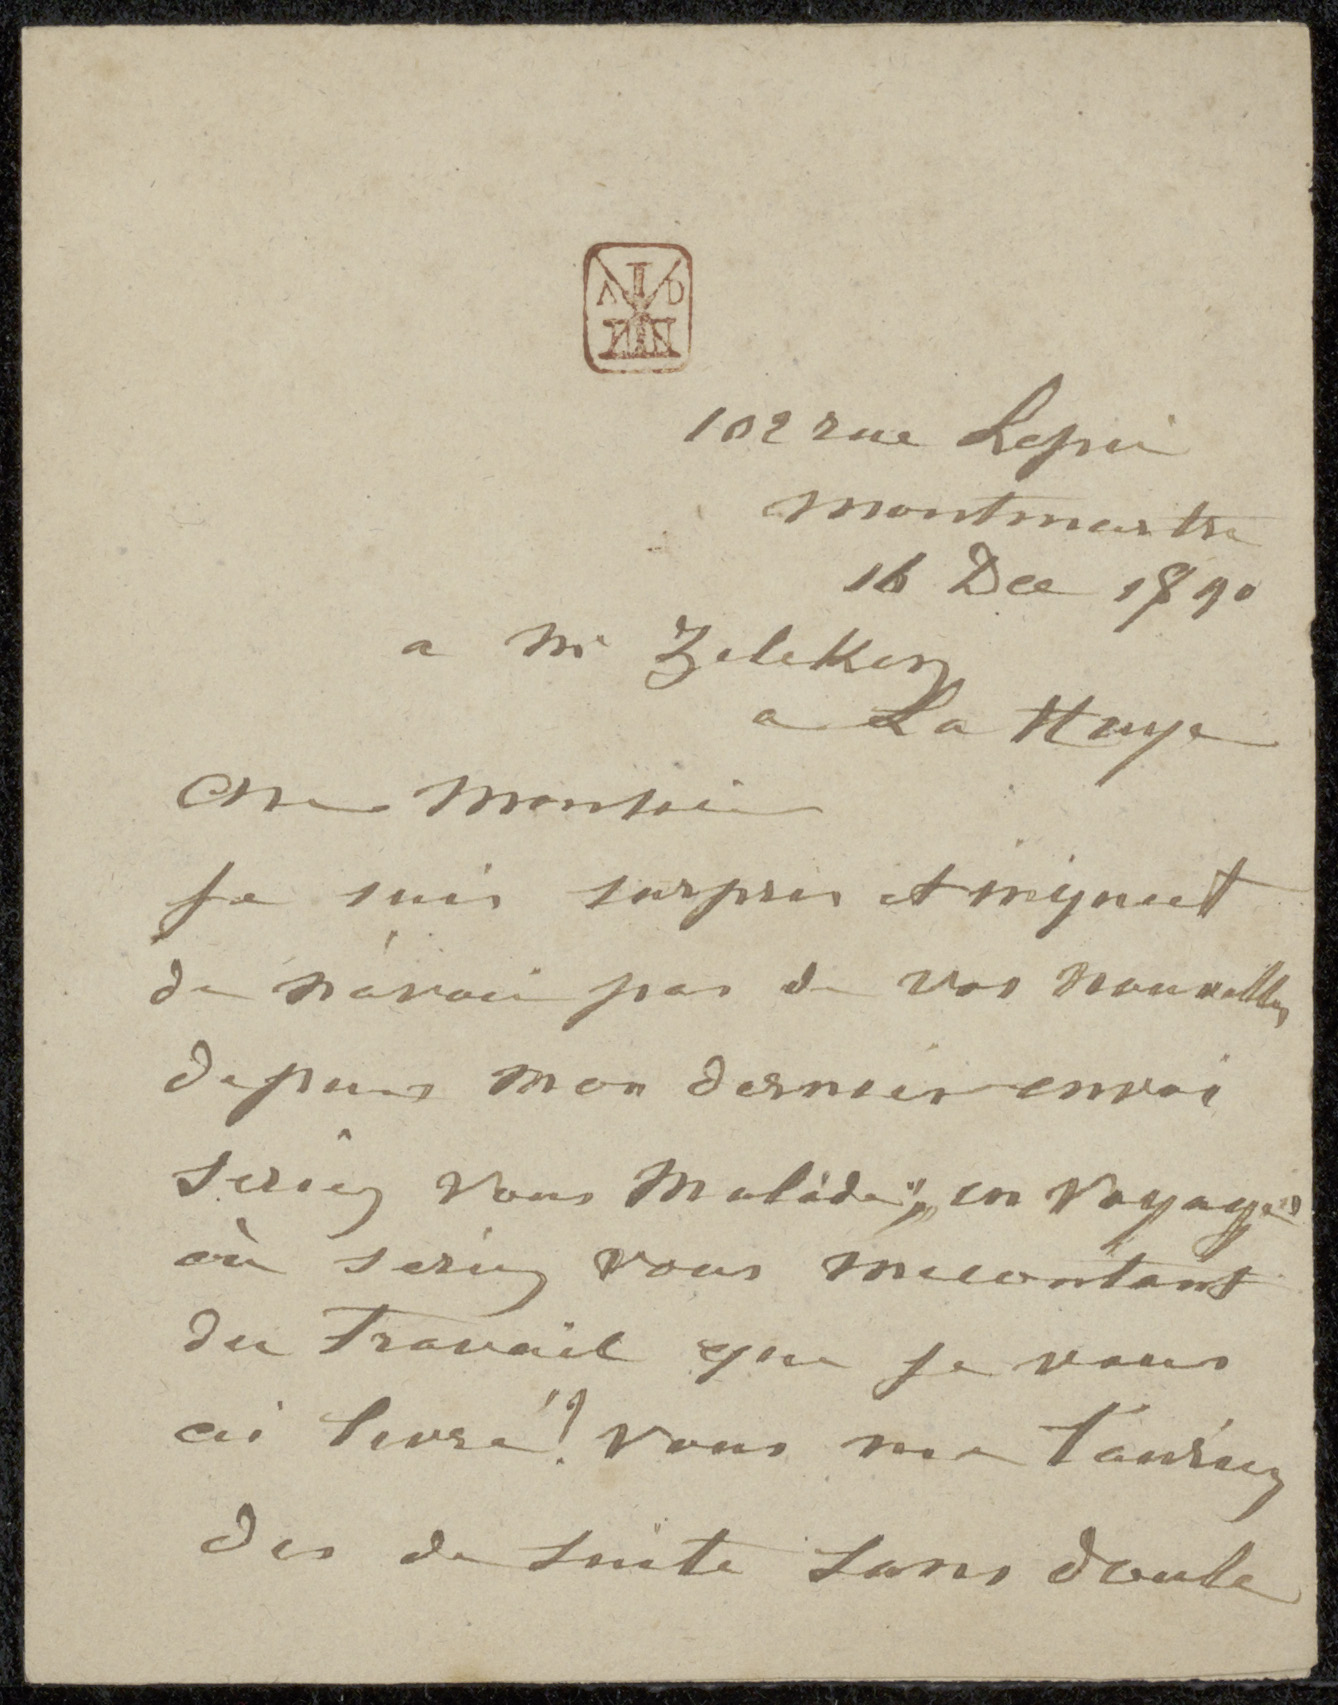 A D
102 rue Lepic
Montmartre
16 Dec 1890
a Mr Zilcken
a La Haye
Cher Monsieur
Je suis surpris et inquiet
de n'avoir pas de vos nouvelles
depuis mon dernier envoi
seriez vous malade, en voyage
où seriez vous mecontent
du travail que je vous
ai livré? Vous me l'auriez
dis de suite sans doute